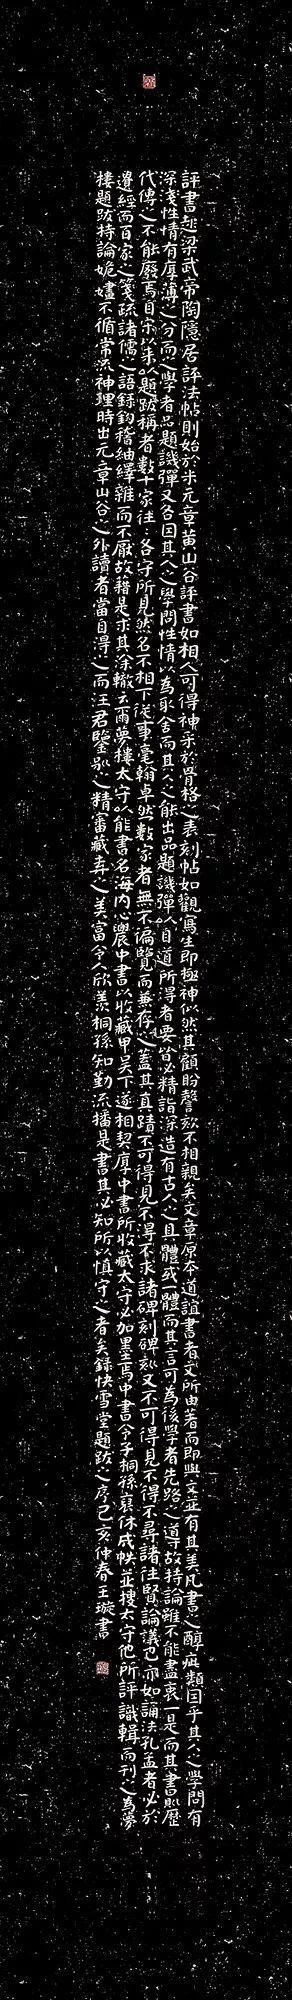 評書述梁武帝陶隱居評法帖則始於米元章黃山谷評書如相人可得神采於骨格之表刻帖如觀寫生即極神似然其顧盼謦欬不相親矣文章原本道誼書者文所由著而即與文並有其美凡書之醇疵類因乎其人之學問有
深淺性情有厚薄之分而之學者品題譏彈又各因其人之學問性情以為取舍而其人之能出品題譏彈人自道所得者要皆必精詣深造有古人之具體或一體而其言可為後學者先路之導故持論雖不能盡衷一是而其書歷
代傳之不能廢焉自宋以來以題跋稱者數十家往各守所見然名不相下從事毫翰卓然數家者無不徧覽而兼存之蓋其真蹟不可得見不得不求諸碑刻碑刻又不可得見不得不尋諸往賢論議也亦如誦法孔孟者必於
遺經而百家之箋疏諸儒之語錄鉤稽紬繹雜而不厭故藉是求其塗轍云爾夢樓太守以能書名海內心農中書以收藏甲吳下遂相契厚中書所收藏太守必加墨焉中書令子桐孫裒休成帙並搜太守他所評識輯而刊之為夢
樓題跋持論姽嫿不循常流神理時出元章山谷之外讀者當自得之而王君鑒別之精審藏弆之美富令人欣羨桐孫知勤流播是書其必知所以慎守之者矣錄快雪堂題跋之序己亥仲春王璇書